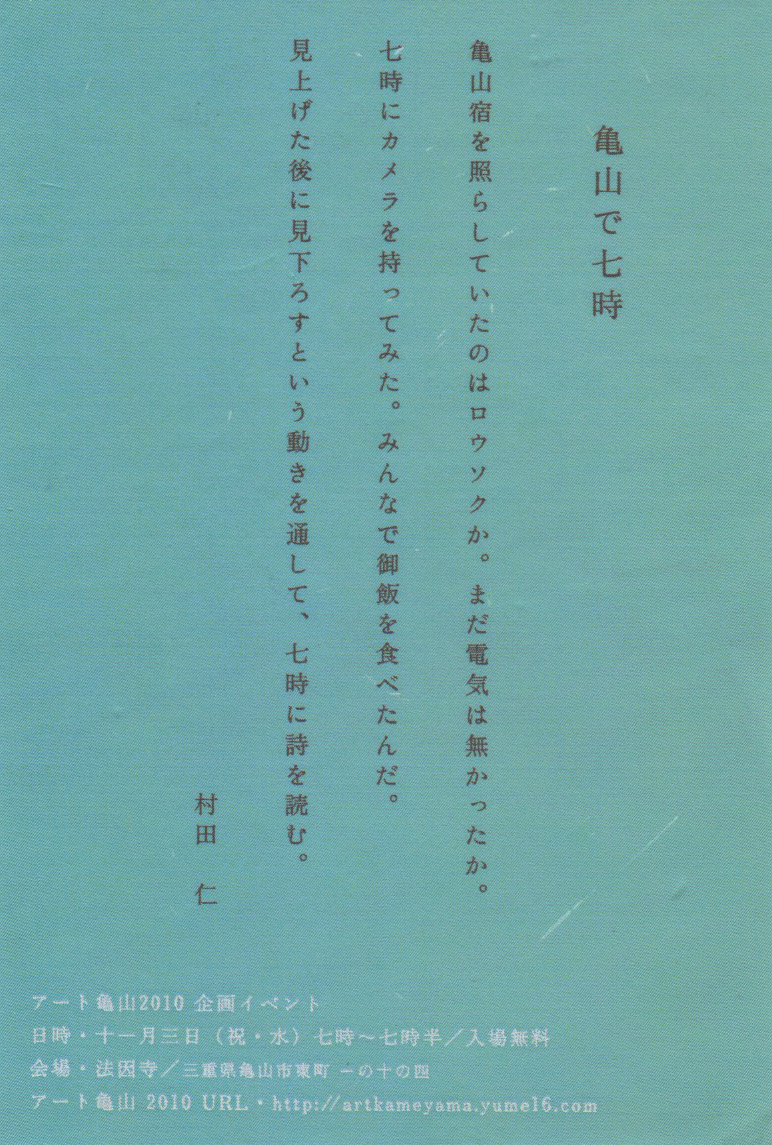 亀山で七時
亀山宿を照らしていたのはロウソクか。まだ電気は無かったか。
七時にカメラを持ってみた。みんなで御飯を食べたんだ。
見上げた後に見下ろすという動きを通して、七時に詩を読む。
村田　仁
アート亀山2010 企画イベント
日時・十一月三日（祝・水）七時～七時半／入場無料
会場・法因寺／三重県亀山市東町 一の十の四
アート亀山 2010 URL・http://artkameyama.yume16.com